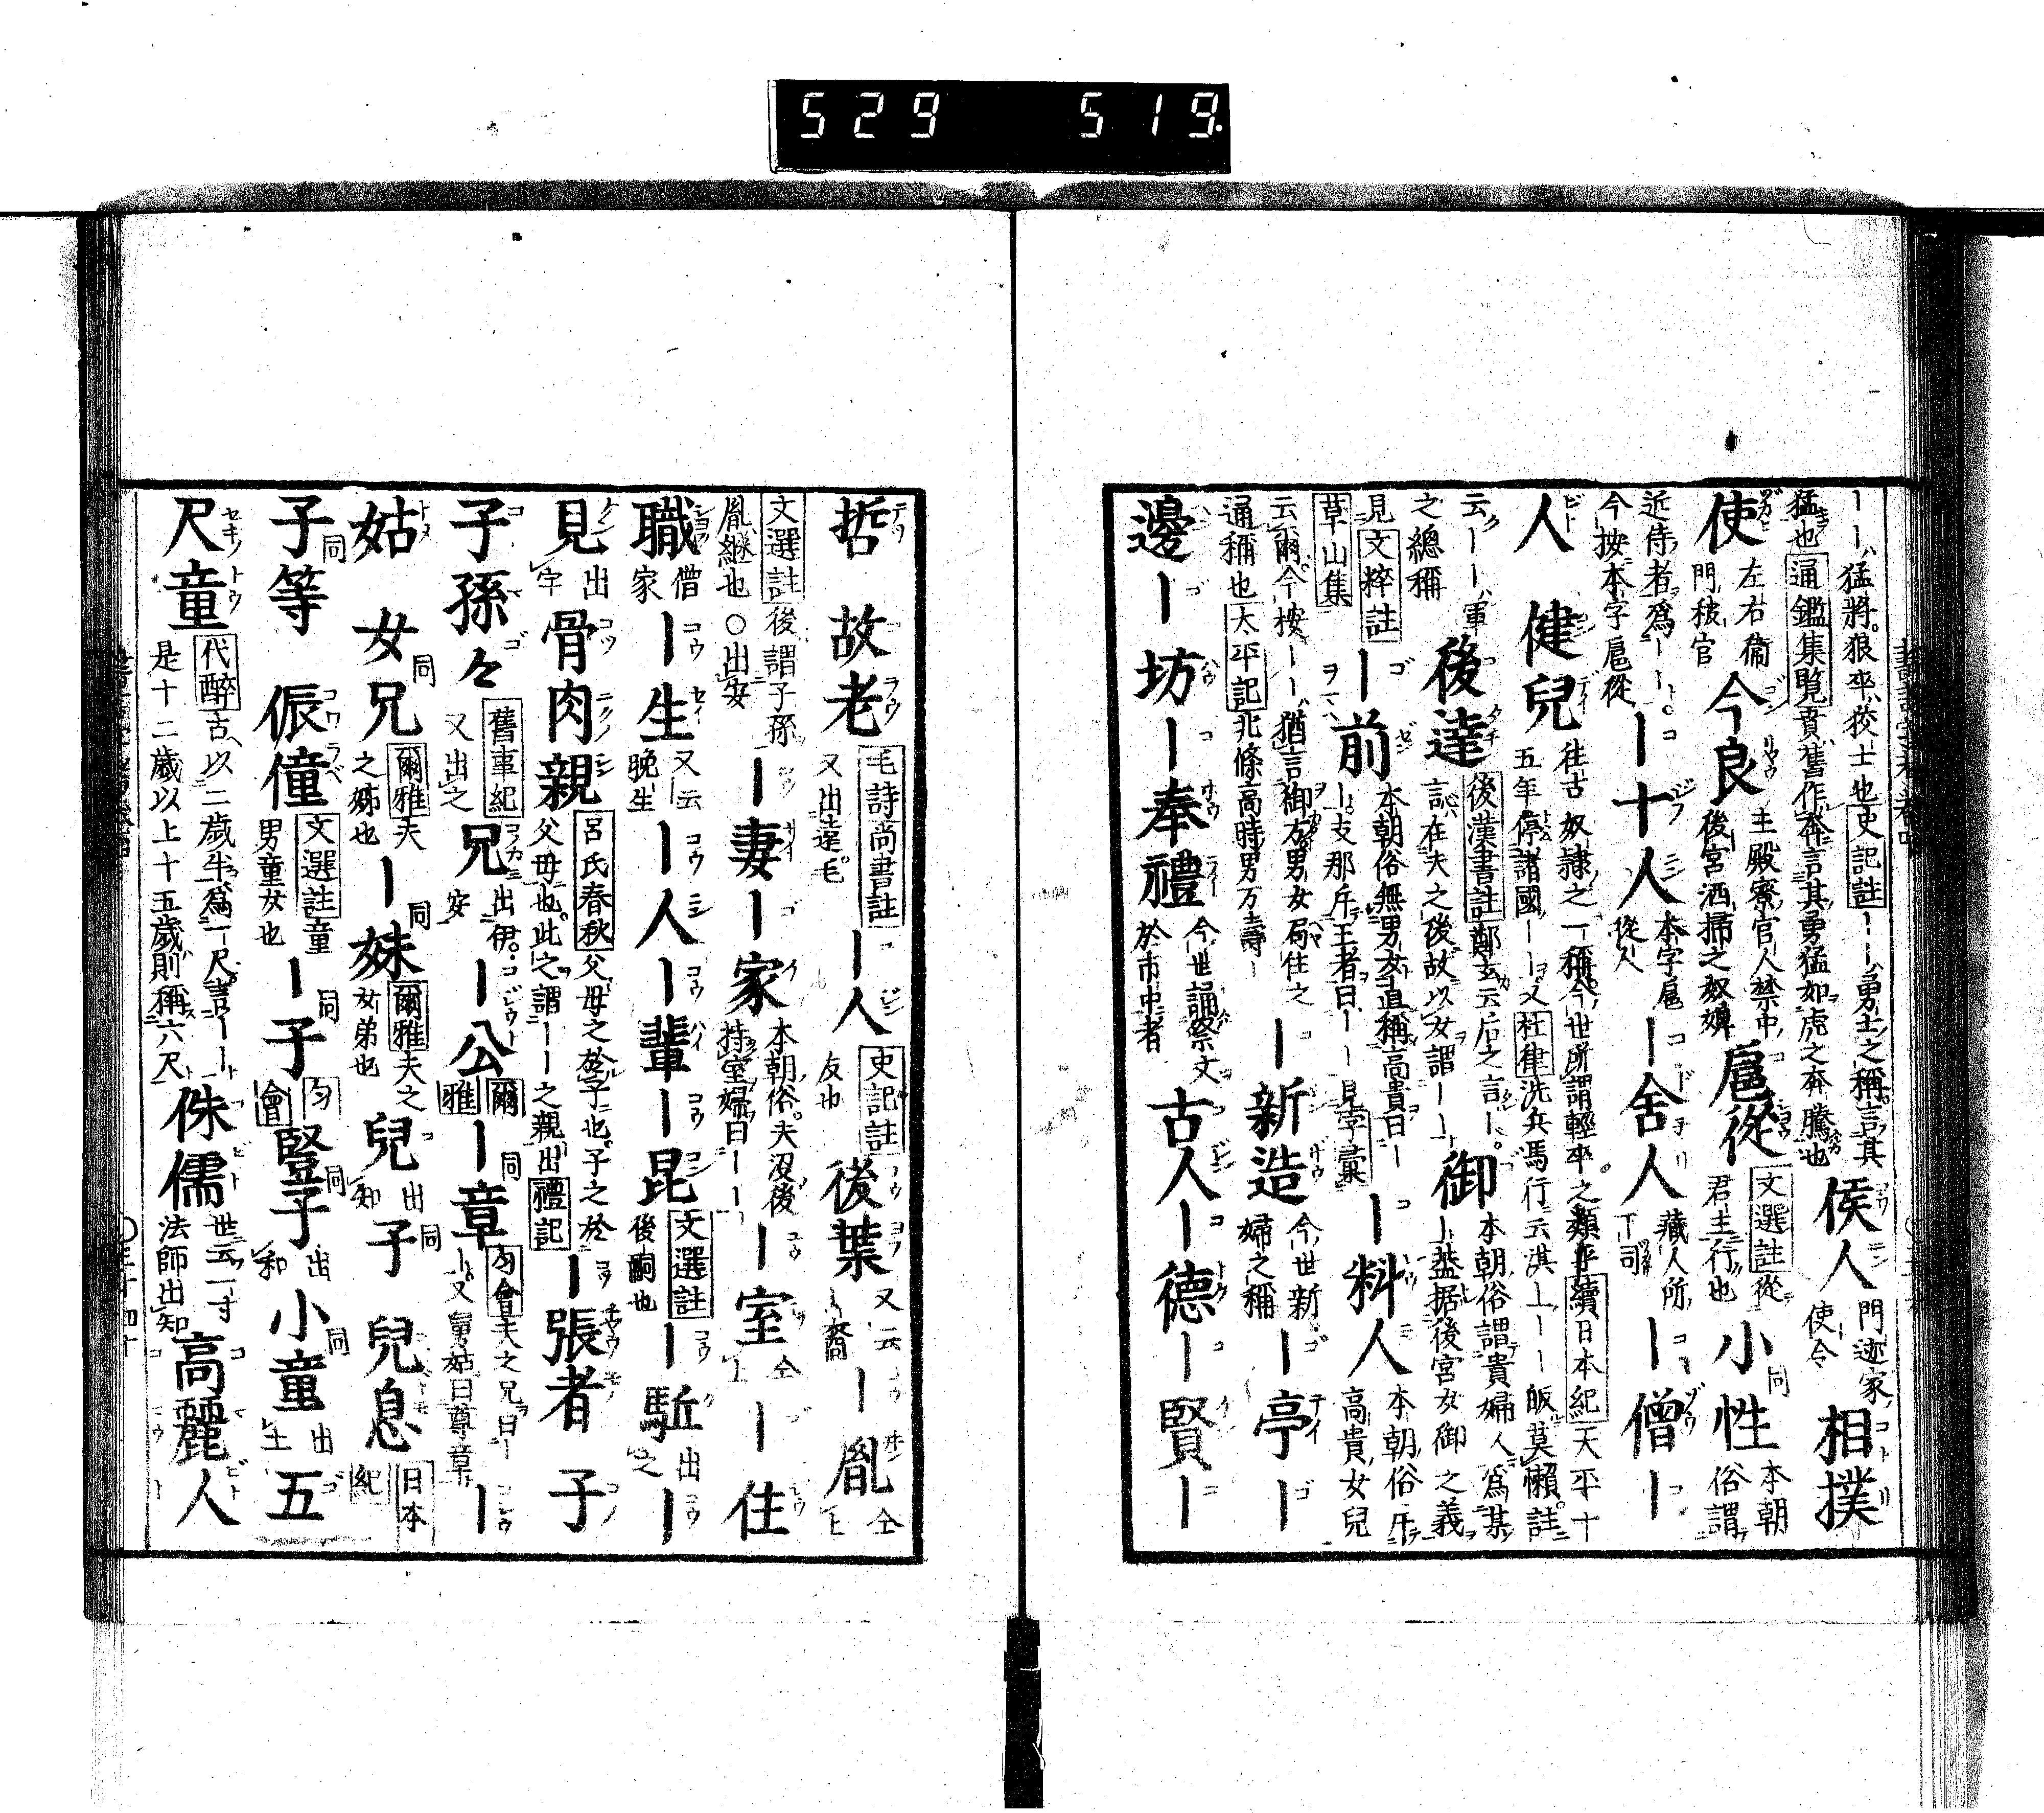 529 519.
——猛將。狼卒、狡士也史記註———勇士之稱言其
猛也通鑑集覽賁舊作奔言其勇猛如虎之奔騰也 侯人 門迹家使令 相撲
使 左右衞門被官 今良 主殿寮官人禁中後宮洒掃之奴婢 扈從 文選註從君主行也 小性 同 本朝俗謂
近侍者爲——今按本字扈從 —十人 本字扈從人 —舍人 藏人所下司 —僧—
人 健兒 往古奴隷之一稱今世所謂輕卒之類乎續日本紀天平十五年停諸國——又杜律洗兵馬行云淇上——皈莫懶註
云——軍之總稱 後達 後漢書註鄭玄云后之言—言在夫之後故以女謂—— 御 本朝俗謂貴婦人爲某—盖据後宮女御之義
見文粹註草山集 —前 本朝俗無男女直稱高貴曰——支那斥王者曰——見字彙 —料人 本朝俗斥高貴女兒
云爾今按——猶言御方男女局住之通稱也太平記北條高時男万壽— —新造 今世新婦之稱 —亭—
邊—坊—奉禮 今世誦祭文於市中者 古人—德—賢—
哲 故老 毛詩尚書註又出遠毛 —人 史記註友也 後葉 又云—裔 —胤 仝上
文選註後謂子孫胤繼也○出安 —妻—家 本朝俗夫沒後持室婦曰—— —室 仝上 —住
職 僧家 —生 又云晩生 —人—輩—昆 文選註後嗣也 —䭾 出之 —
見 出宇 骨肉親 呂氏春秋父母之於子也子之於父母也此之謂——之親出禮記 —張者 子
子孫々 舊事紀又出之 兄 出伊安 —公 爾雅 —章 同 匀會夫之兄曰——又舅姑曰尊章 —
姑 女兄 同 爾雅夫之姊也 —妹 同 爾雅夫之女弟也 兒 出知 子 同 兒息 日本紀
子等 同 侲僮 文選註童男童女也 —子 同 匀會 豎子 同 出和 小童 同 出土 五
尺童 代醉古以二歲半爲一尺言——是十二歲以上十五歲則稱六尺 侏儒 世云一寸法師出知 高麗人